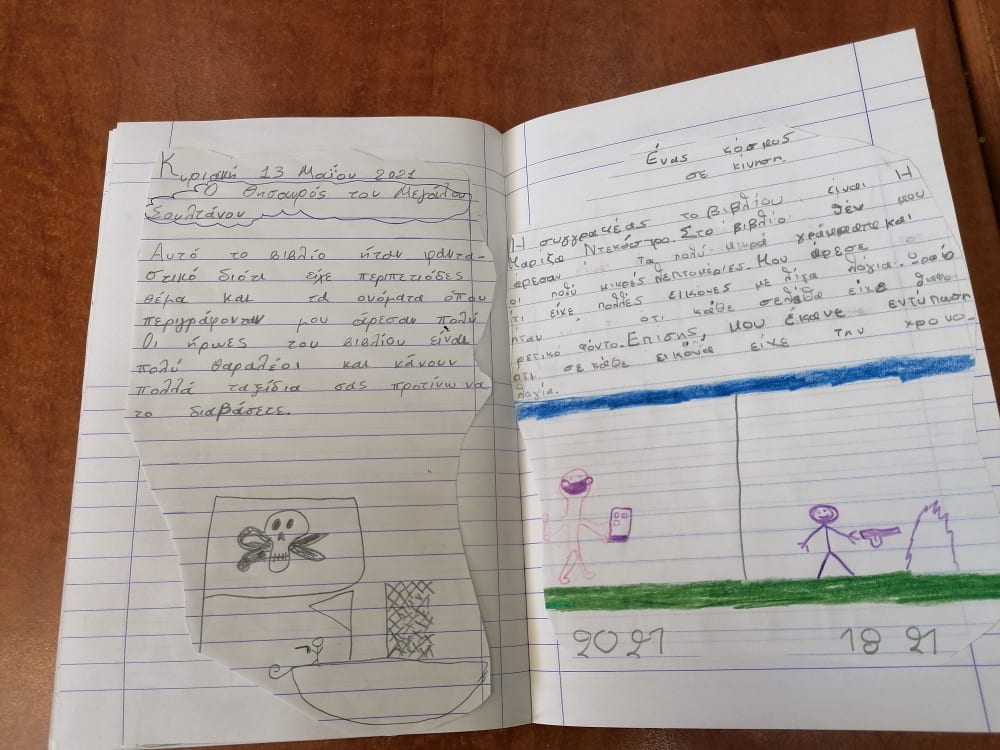 Κυριακή 13 Μαΐου 2021
Ο Θησαυρός του Μεγάλου
Σουλτάνου
Αυτό το βιβλίο ήταν φαντα-
στικό διότι είχε περιπετιώδες
θέμα και τα ονόματα όπου
περιγράφονταν μου άρεσαν πολύ
Οι ήρωες του βιβλίου είναι
πολύ θαραλέοι και κάνουν
πολλά ταξίδια σας προτίνω να
το διαβάσετε.
Ένας κόσμος
σε κίνηση
Η συγγραφέας το βιβλίου είναι Η
Μαρίζα Ντεκάστρο. Στο βιβλίο δεν μου
άρεσαν τα πολύ μικρά γράμματα και
οι πολύ μικρές λεπτομέριες. Μου άρεσε
ότι είχε πολλές εικόνες με λίγα λόγια. Ωραίο
ήταν ότι κάθε σελίδα είχε διαφο-
ρετικό φόντο. Επίσης, μου έκανε εντύπωση
ότι σε κάθε εικόνα είχε την χρονο-
λογία.
2021
1821